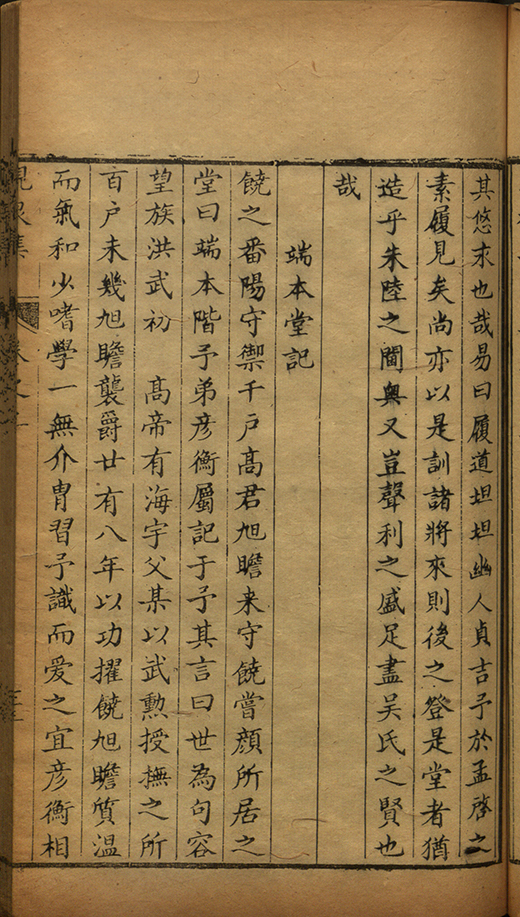 其悠求也哉易曰履道坦坦幽人貞吉予於孟啓之
素履見矣尚亦以是訓諸將來則後之登是堂者猶
造乎朱陸之閫奥又豈聲利之盛足盡吴氏之賢也
哉
端本堂記
饒之番陽守禦千戶髙君旭瞻来守饒嘗顔所居之
堂曰端本階予弟彦衡屬記于予其言曰世為句容
望族洪武初 髙帝有海宇父某以武勲授撫之所
百戶未幾旭瞻襲爵廿有八年以功擢饒旭瞻質溫
而氣和少嗜學一無介胄習予識而爱之宜彦衡相